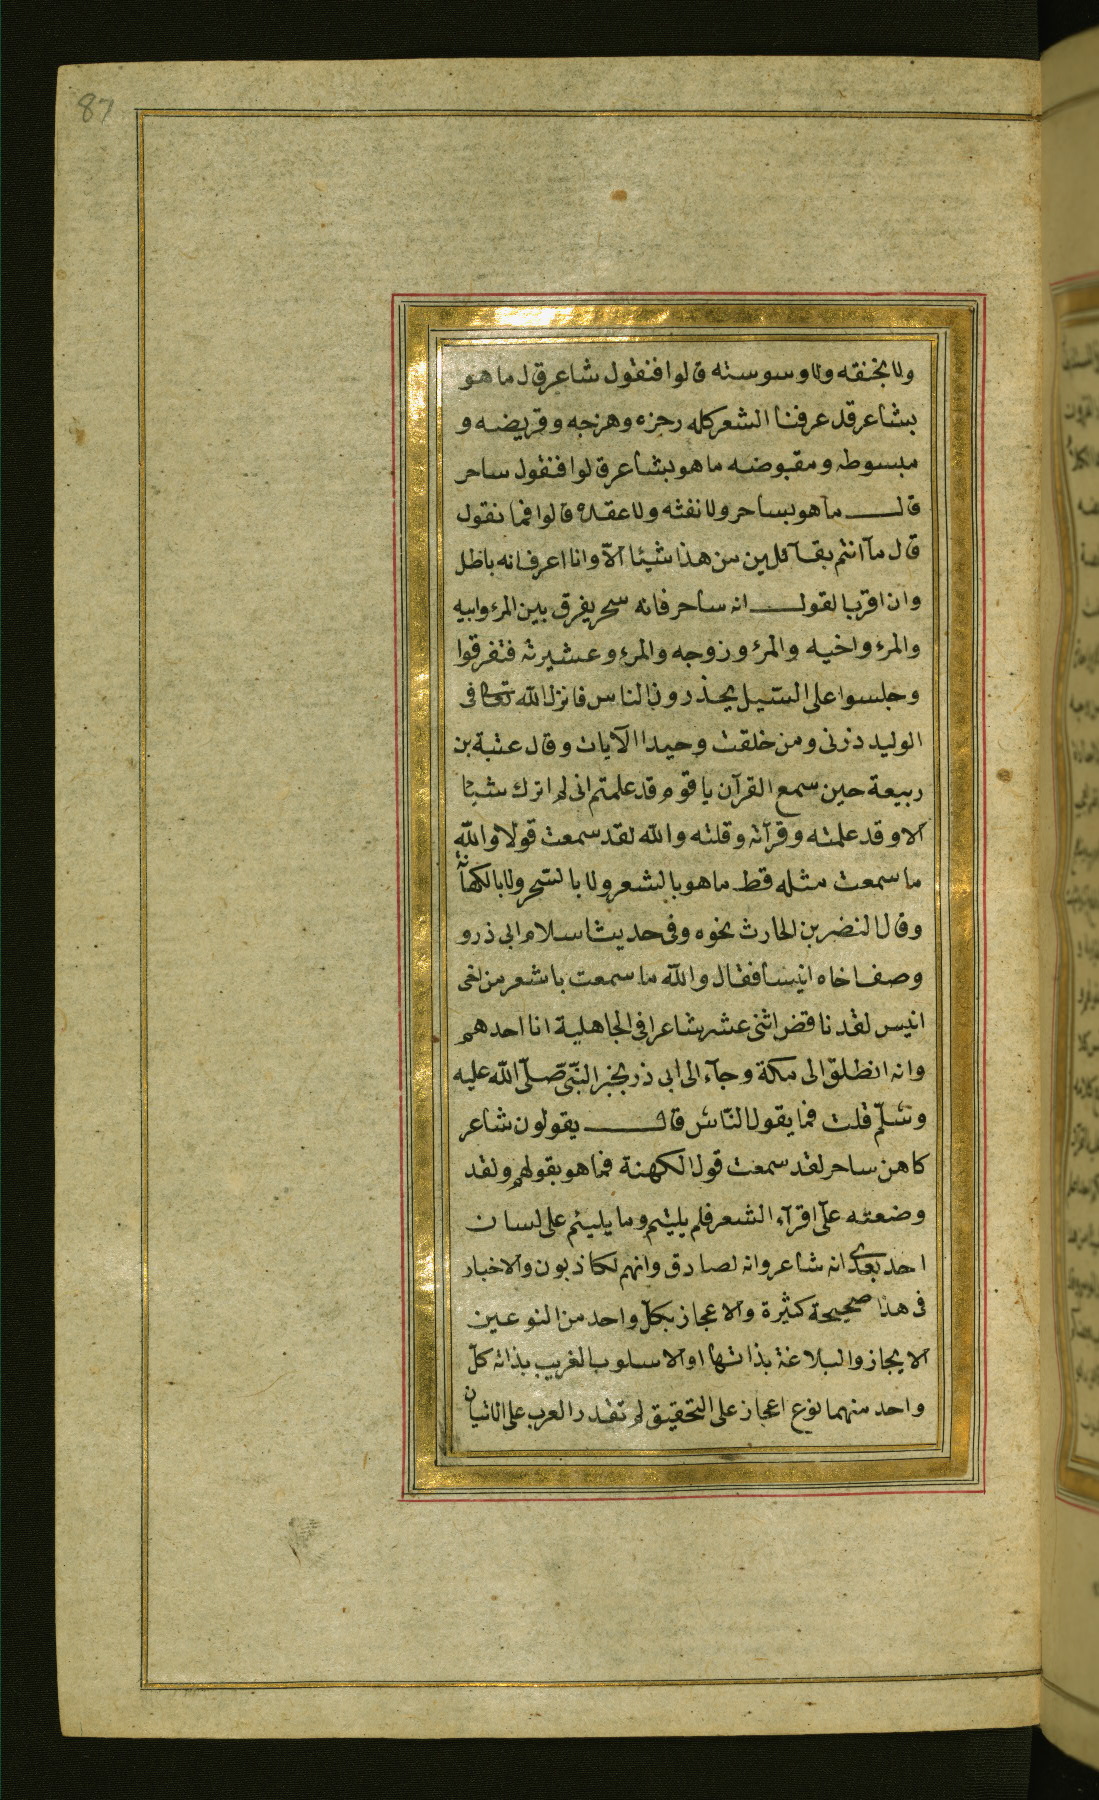 87
ولا بخنقه ولا وسوسته قالوا فنقول شاعر قال ما هو
بشاعر قد عرفنا الشعر كله رجزه وهزجه وقريضه و
مبسوطه ومقبوضه ما هو بشاعر قالوا فنقول ساحر
قال ما هو بساحر ولا نفثه ولا عقده قالوا فما نقول
قال ما انتم بقآئلين من هذا شيئا الّا وانا اعرف انه باطل
وان اقرب القول انه ساحر فانه سحر يفرق بين المرء وابيه
والمرء واخيه والمرء وزوجه والمرء وعشيرته فتفرقوا
وجلسوا على السّبيل يحذرون الناس فانزل الله تعالى فى
الوليد ذرنى ومن خلقت وحيدا الآيات وقال عتبة بن
ربيعة حين سمع القرآن يا قوم قد علمتم انى لم اترك شيئا
الا وقد علمته وقرآته وقلته والله لقد سمعت قولا والله
ما سمعت مثله قط ما هو بالشعر ولا بالسّحر ولا بالكهانة
وقال النضر بن الحارث نحوه وفى حديث اسلام ابى ذر و
وصف اخاه انيسا فقال والله ما سمعت باشعر من اخى
انيس لقد ناقض اثنى عشر شاعرا فى الجاهلية انا احدهم
وانه انطلق الى مكة وجآء الى ابى ذر بخبر النّبىّ صلّى الله عليه
وسلّم قلت فما يقول النّاس قال يقولون شاعر
كاهن ساحر لقد سمعت قول الكهنة فما هو بقولهم ولقد
وضعته على اقرآء الشعر فلم يلتئم وما يليئم على لسان
احد بعدى انه شاعر وانه لصادق وانهم لكاذبون والاخبار
فى هذا صحيحة كثيرة والاعجاز بكلّ واحد من النوعين
الايجاز والبلاغة بذاتها او الاسلوب الغريب بذاته كلّ
واحد منهما نوع اعجاز على التحقيق لم تقدر العرب على الاتيان